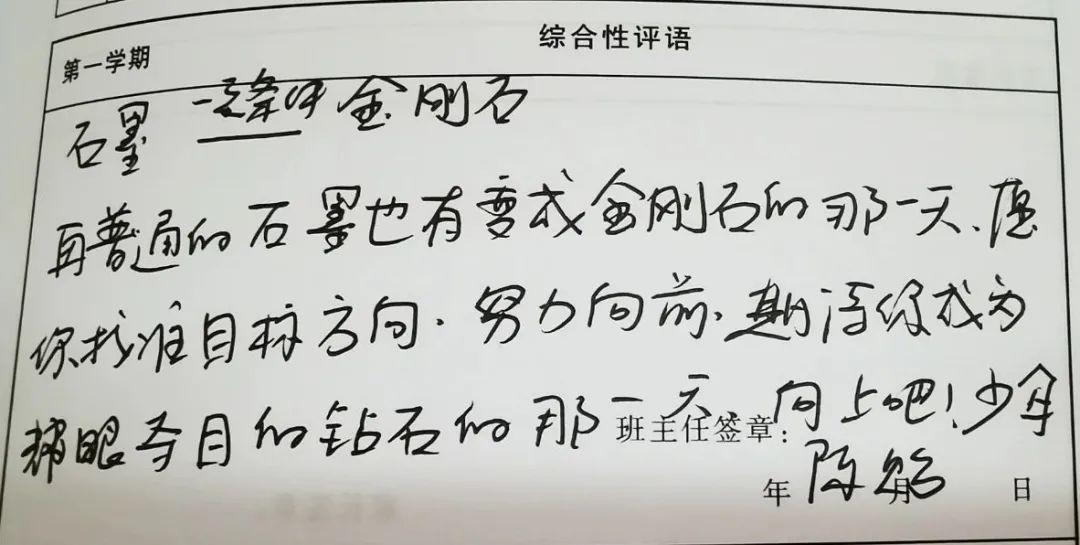 综合性评语
第一学期
石墨 一定条件 金刚石
再普通的石墨也有变成金刚石的那一天、愿
你找准目标方向.努力向前.期待你成为
耀眼夺目的钻石的那一天、向上吧!少年
班主任签章:
陈
年 月 日